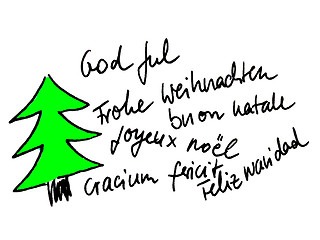 God Jul
Frohe Weihnachten
buon natale
Joyeux noël
Cracium fericit
Feliz navidad